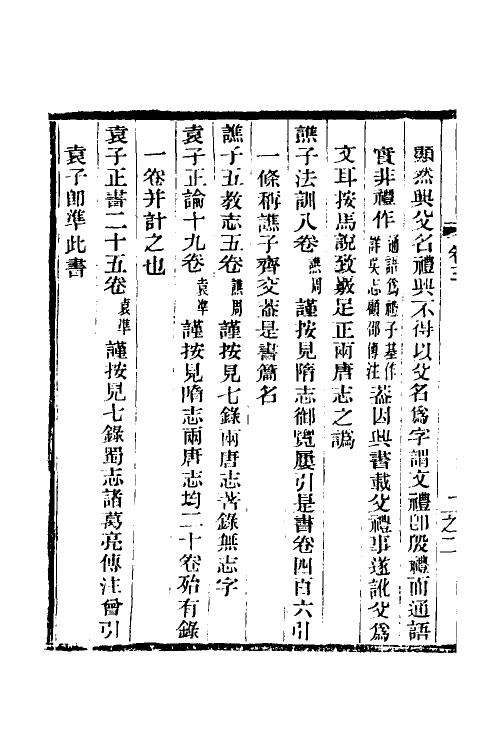 顯然與父名禮興不得以父名爲字謂文禮卽殷禮而通語
實非禮作通語爲禮子基作詳吳志顧邵傳注葢因興書載父禮事遂訛父爲
文耳按馬說致嚴足正兩唐志之譌
譙子法訓八卷譙周謹按見隋志御覽屢引是書卷四百六引
一條稱譙子齊交葢是書篇名
譙子五教志五卷譙周謹按見七錄兩唐志著錄無志字
袁子正論十九卷袁準謹按見隋志兩唐志均二十卷殆有錄
一卷并計之也
袁子正書二十五卷袁準謹按見七錄蜀志諸葛亮傳注曾引
袁子卽準此書
卷三